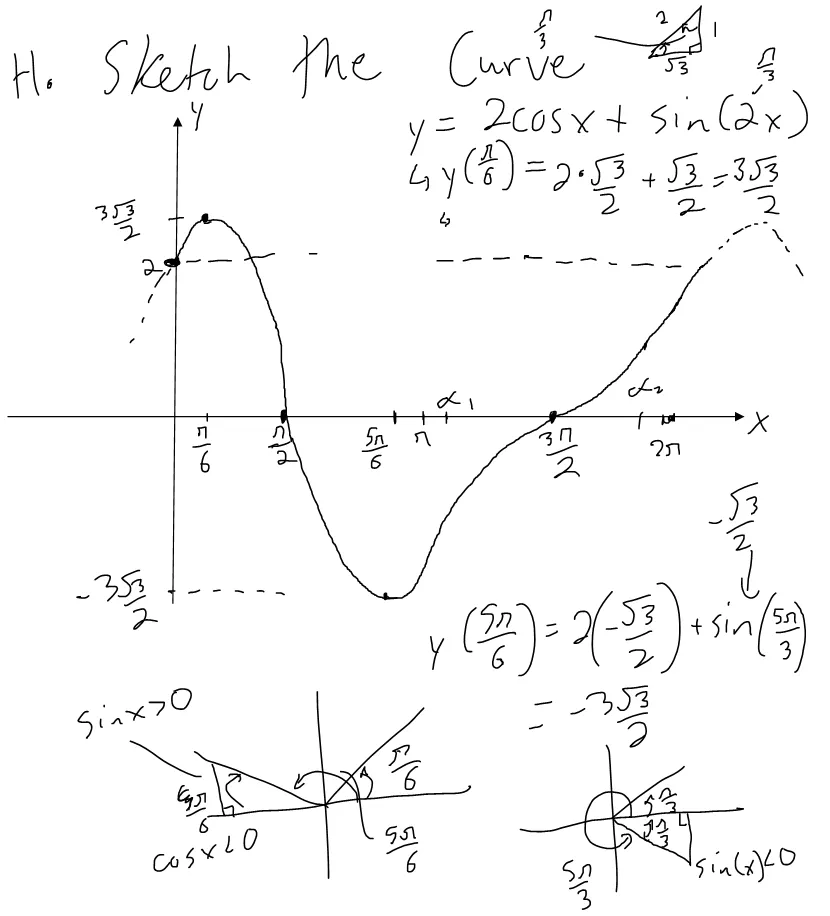 H. Sketch the Curve
π/3
2 1 √3
π/3
y = 2cosx + sin(2x)
↳ y(π/6) = 2·√3/2 + √3/2 = 3√3/2
y
3√3/2
2
α₁ α₂
π/6 π/2 5π/6 π 3π/2 2π x
-3√3/2
-√3/2
y(5π/6) = 2(-√3/2) + sin(5π/3)
= -3√3/2
sinx>0
π/6
5π/6
cosx<0
5π/6
π/3
π/3
sin(x)<0
5π/3